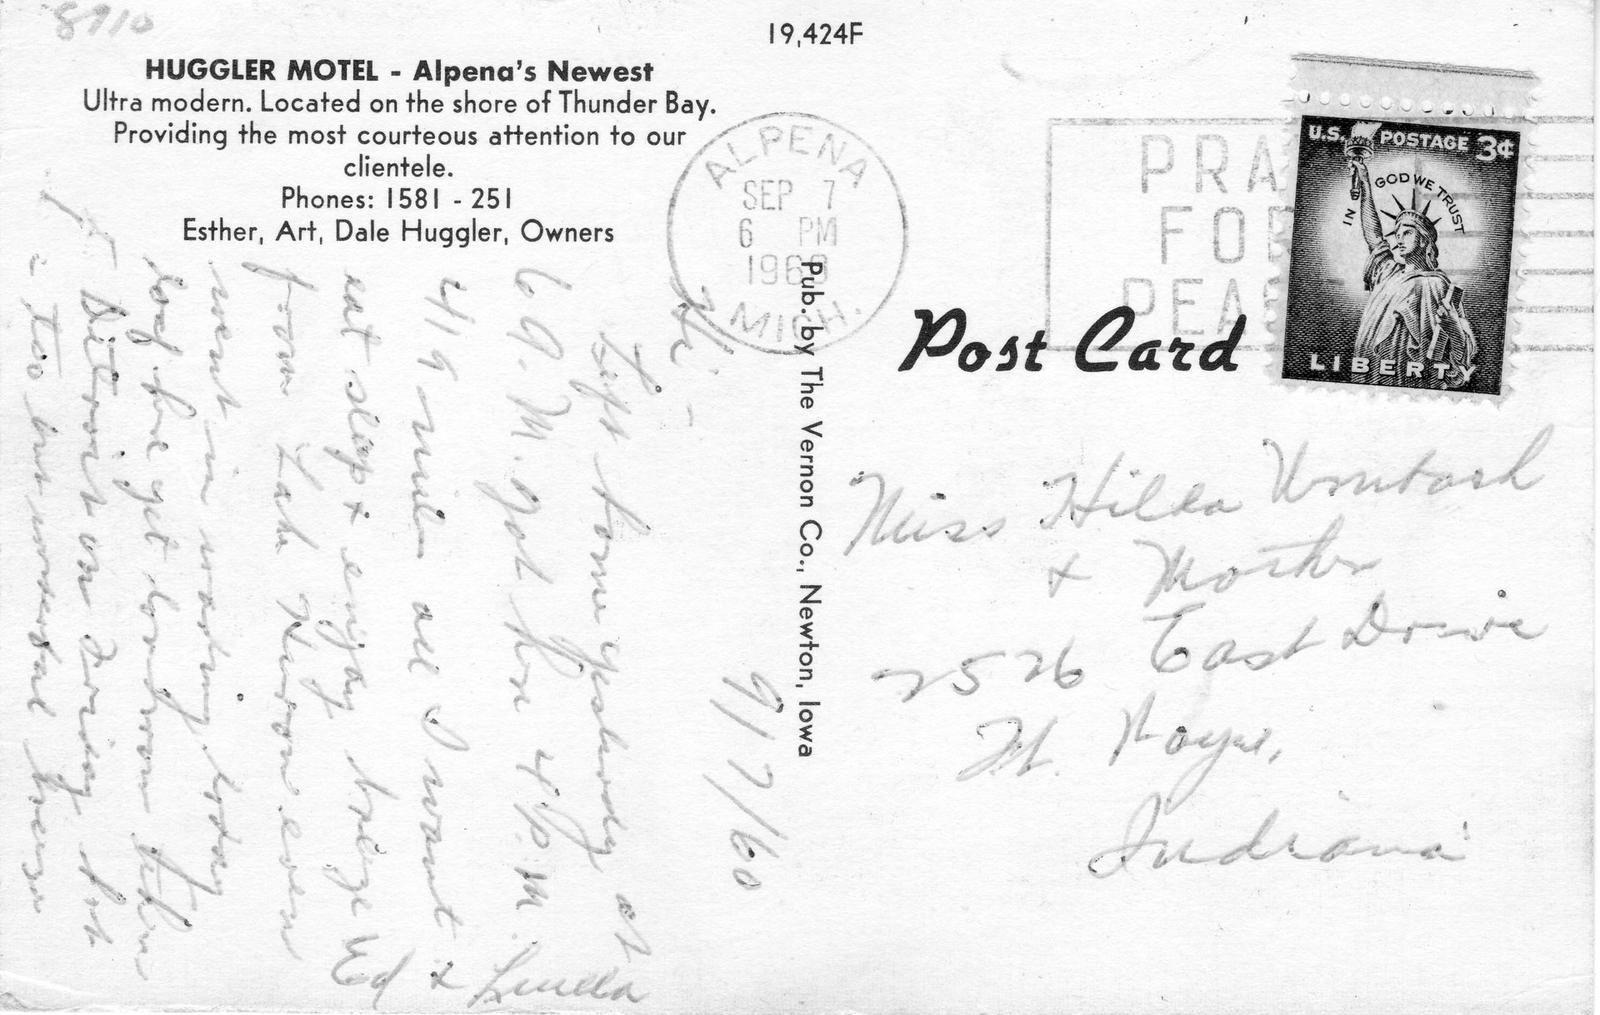 8910
19,424F
HUGGLER MOTEL - Alpena's Newest
Ultra modern. Located on the shore of Thunder Bay.
Providing the most courteous attention to our
clientele.
Phones: 1581 - 251
Esther, Art, Dale Huggler, Owners
ALPENA
SEP 7
6 PM
1960
MICH.
PRA
FOR
PEA
U.S. POSTAGE 3¢
IN GOD WE TRUST
LIBERTY
Post Card
Pub. by The Vernon Co., Newton, Iowa
9/7/60
Hi -
Left home yesterday at
6 A.M. got here 4 P.M.
419 miles all I want &
eat sleep & enjoy breeze
from Lake Huron even
went in wading today
long time
to Detroit on Friday hot
too but here
Ed & Luella
Miss Hilda
& Mother
2526 East Drive
Ft. Wayne,
Indiana